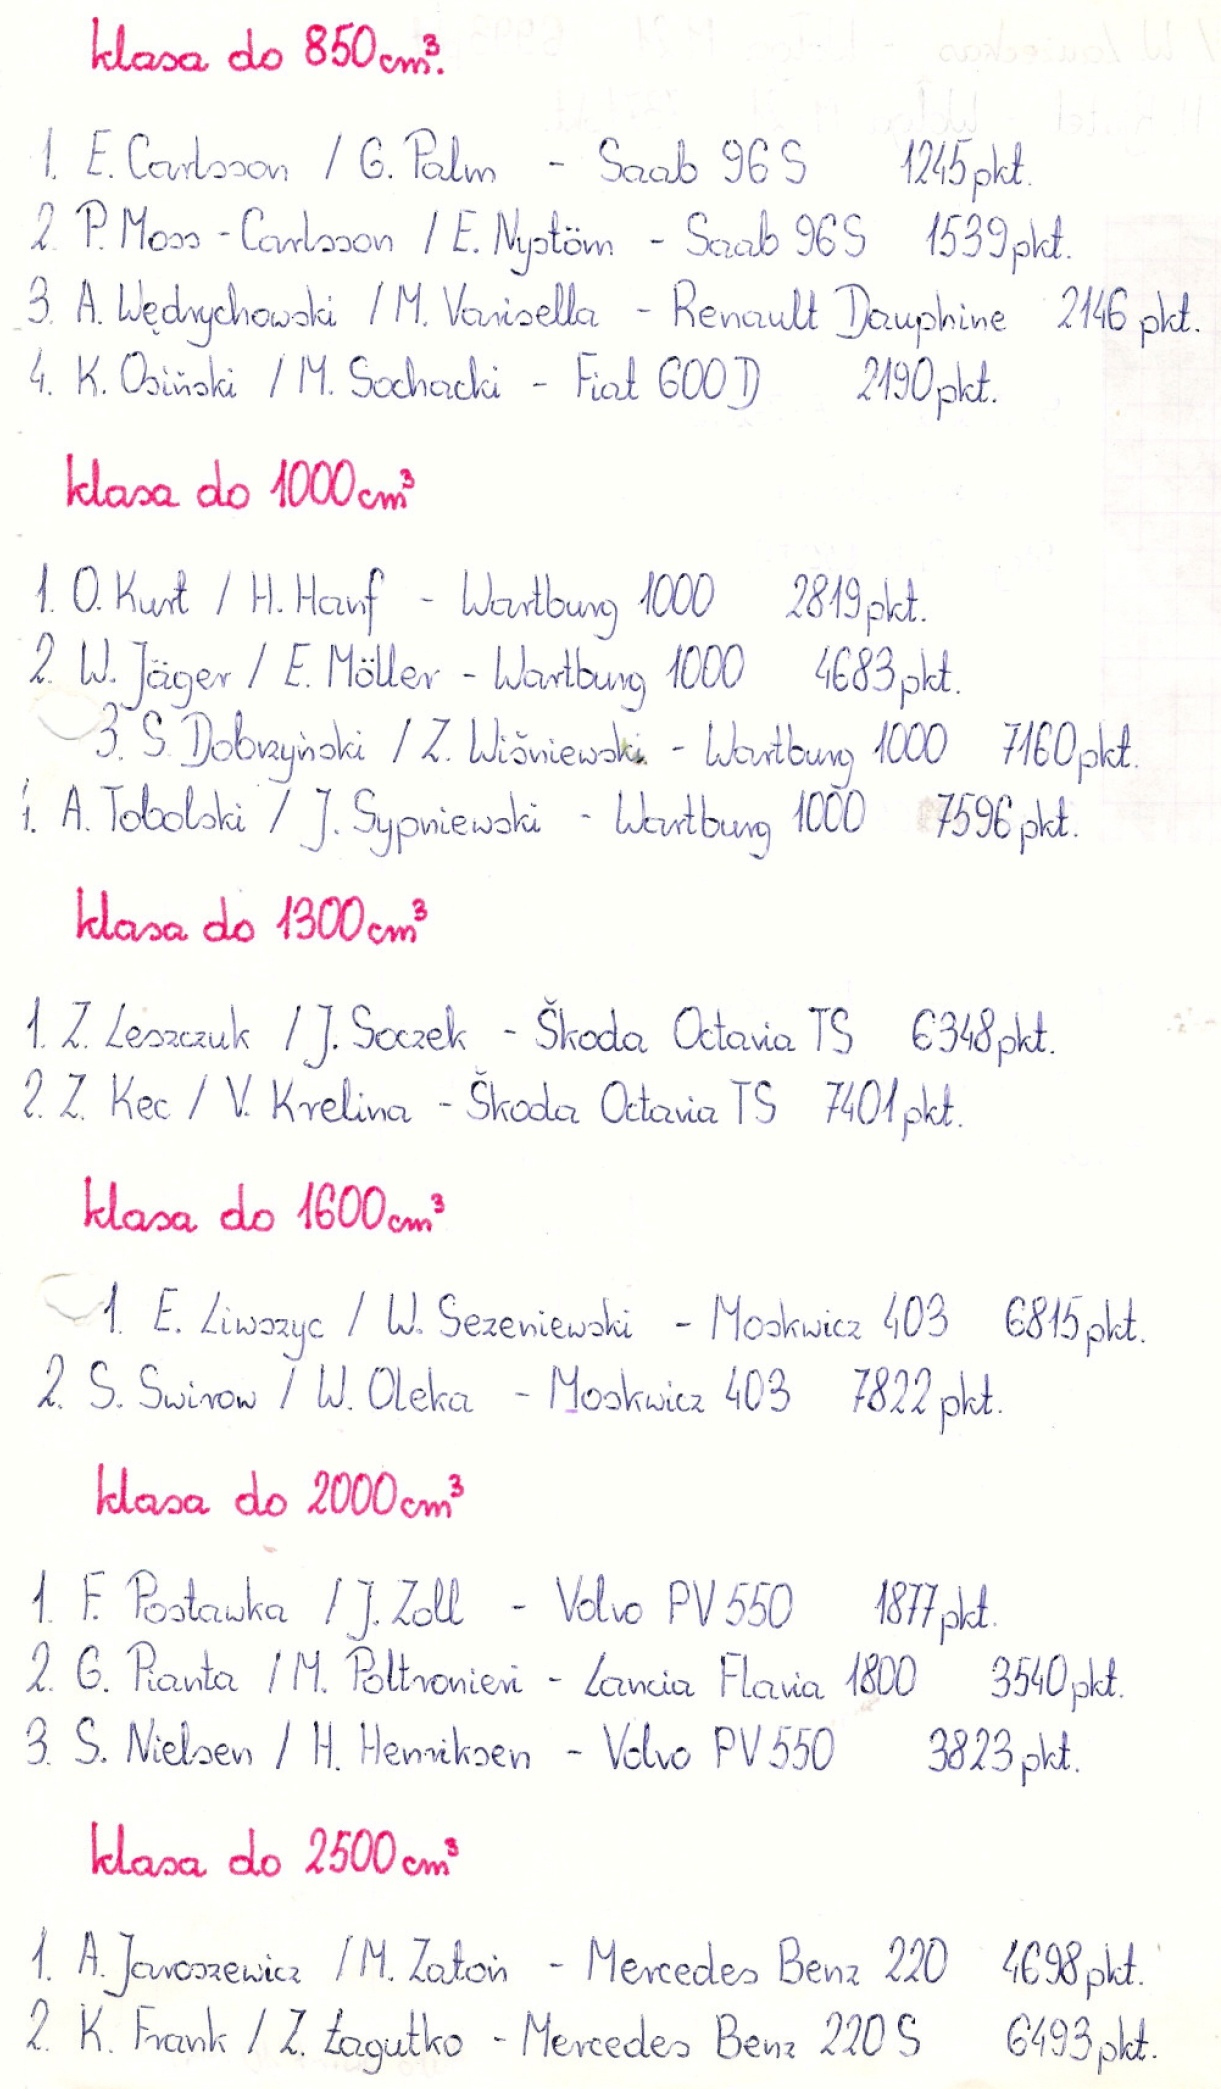 klasa do 850cm³.
1. E. Carlsson / G. Palm - Saab 96S 1245pkt.
2. P. Moss - Carlsson / E. Nyström - Saab 96S 1539pkt.
3. A. Wędrychowski / M. Varisella - Renault Dauphine 2146 pkt.
4. K. Osiński / M. Sochacki - Fiat 600D 2190pkt.
klasa do 1000cm³
1. O. Kurt / H. Hanf - Wartburg 1000 2819pkt.
2. W. Jäger / E. Möller - Wartburg 1000 4683pkt.
3. S. Dobrzyński / Z. Wiśniewski - Wartburg 1000 7160pkt.
4. A. Tobolski / J. Sypniewski - Wartburg 1000 7596pkt.
klasa do 1300cm³
1. Z. Leszczuk / J. Soczek - Škoda Octavia TS 6348pkt.
2. Z. Kec / V. Krelina - Škoda Octavia TS 7401pkt.
klasa do 1600cm³
1. E. Liwszyc / W. Sezeniewski - Moskwicz 403 6815pkt.
2. S. Swirow / W. Oleka - Moskwicz 403 7822pkt.
klasa do 2000cm³
1. F. Postawka / J. Zoll - Volvo PV 550 1877pkt.
2. G. Pianta / M. Poltronieri - Lancia Flavia 1800 3540pkt.
3. S. Nielsen / H. Henriksen - Volvo PV 550 3823pkt.
klasa do 2500cm³
1. A. Jaroszewicz / M. Zatoń - Mercedes Benz 220 4698pkt.
2. K. Frank / Z. Łagutko - Mercedes Benz 220S 6493pkt.